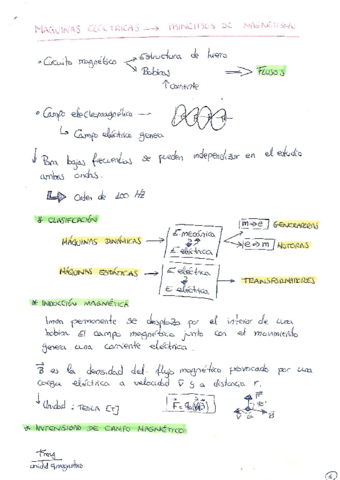 MÁQUINAS ELÉCTRICAS → PRINCIPIOS DE MAGNETISMO
• Circuito magnético → Estructura de hierro
→ Bobinas ⇒ FLUJOS
↑ corriente
• Campo electromagnético →
↳ Campo eléctrico genera
↓ Para bajas frecuencias se pueden independizar en el estudio
ambas ondas.
↳ Orden de 100 Hz
* CLASIFICACIÓN
MÁQUINAS DINÁMICAS → E mecánica ⇅ E eléctrica → m→e GENERADORAS
→ e→m MOTORAS
MÁQUINAS ESTÁTICAS → E eléctrica ⇅ E eléctrica → TRANSFORMADORES
* INDUCCIÓN MAGNÉTICA
Iman permanente se desplaza por el interior de una
bobina. El campo magnético junto con el movimiento
genera una corriente eléctrica.
B es la densidad del flujo magnético provocado por una
carga eléctrica a velocidad v y a distancia r.
↓ Unidad: TESLA [T]
* INTENSIDAD DE CAMPO MAGNÉTICO